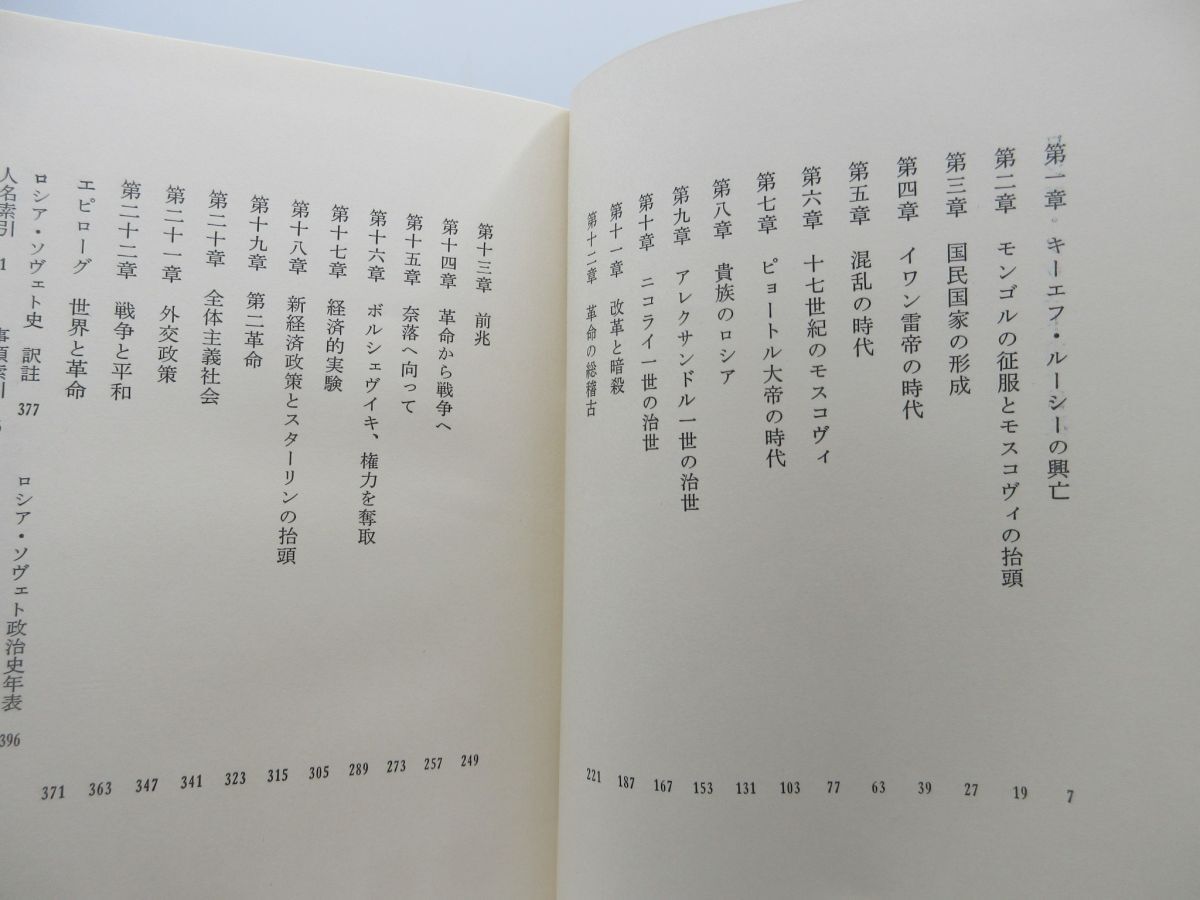 第一章 キーエフ・ルーシーの興亡 7
第二章 モンゴルの征服とモスコヴィの抬頭 19
第三章 国民国家の形成 27
第四章 イワン雷帝の時代 39
第五章 混乱の時代 63
第六章 十七世紀のモスコヴィ 77
第七章 ピョートル大帝の時代 103
第八章 貴族のロシア 131
第九章 アレクサンドル一世の治世 153
第十章 ニコライ一世の治世 167
第十一章 改革と暗殺 187
第十二章 革命の総稽古 221
第十三章 前兆 249
第十四章 革命から戦争へ 257
第十五章 奈落へ向って 273
第十六章 ボルシェヴイキ、権力を奪取 289
第十七章 経済的実験 305
第十八章 新経済政策とスターリンの抬頭 315
第十九章 第二革命 323
第二十章 全体主義社会 341
第二十一章 外交政策 347
第二十二章 戦争と平和 363
エピローグ 世界と革命 371
ロシア・ソヴェト史 訳註 377 ロシア・ソヴェト政治史年表 396
人名索引 1 事項索引